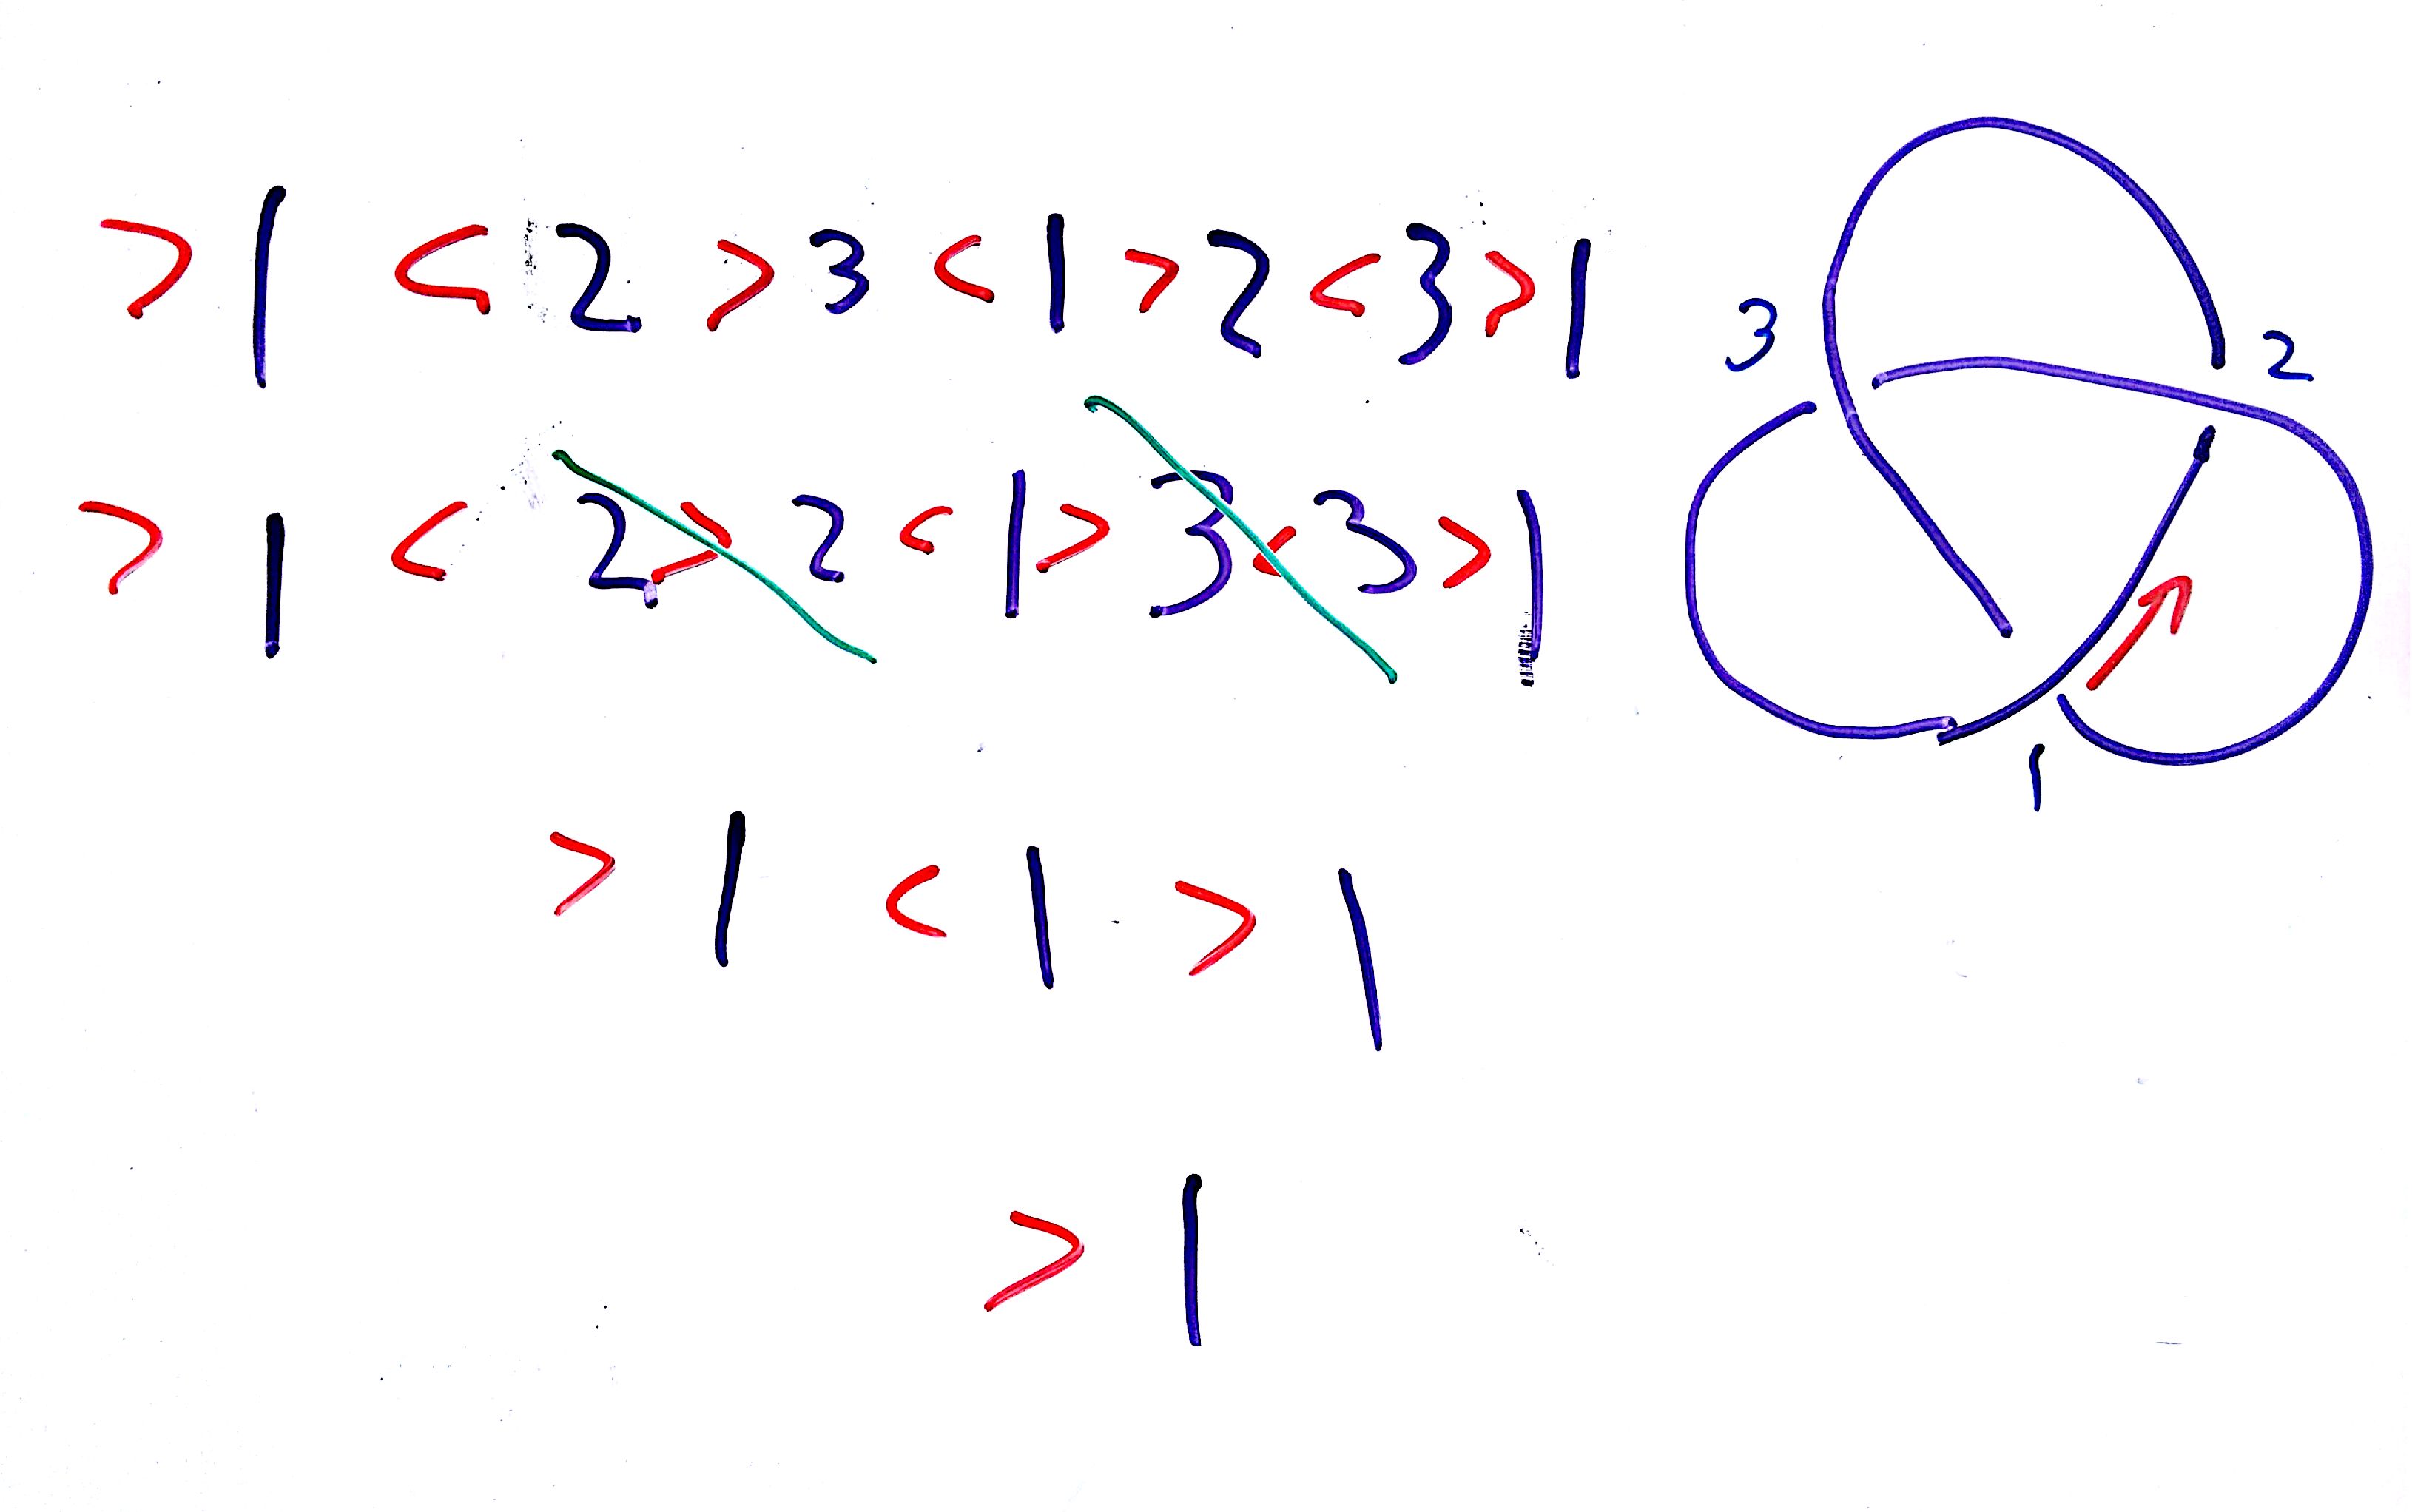 > 1 < 2 > 3 < 1 > 2 < 3 > 1
> 1 < 2 > 2 < 1 > 3 < 3 > 1
> 1 < 1 > 1
> 1
3
2
1